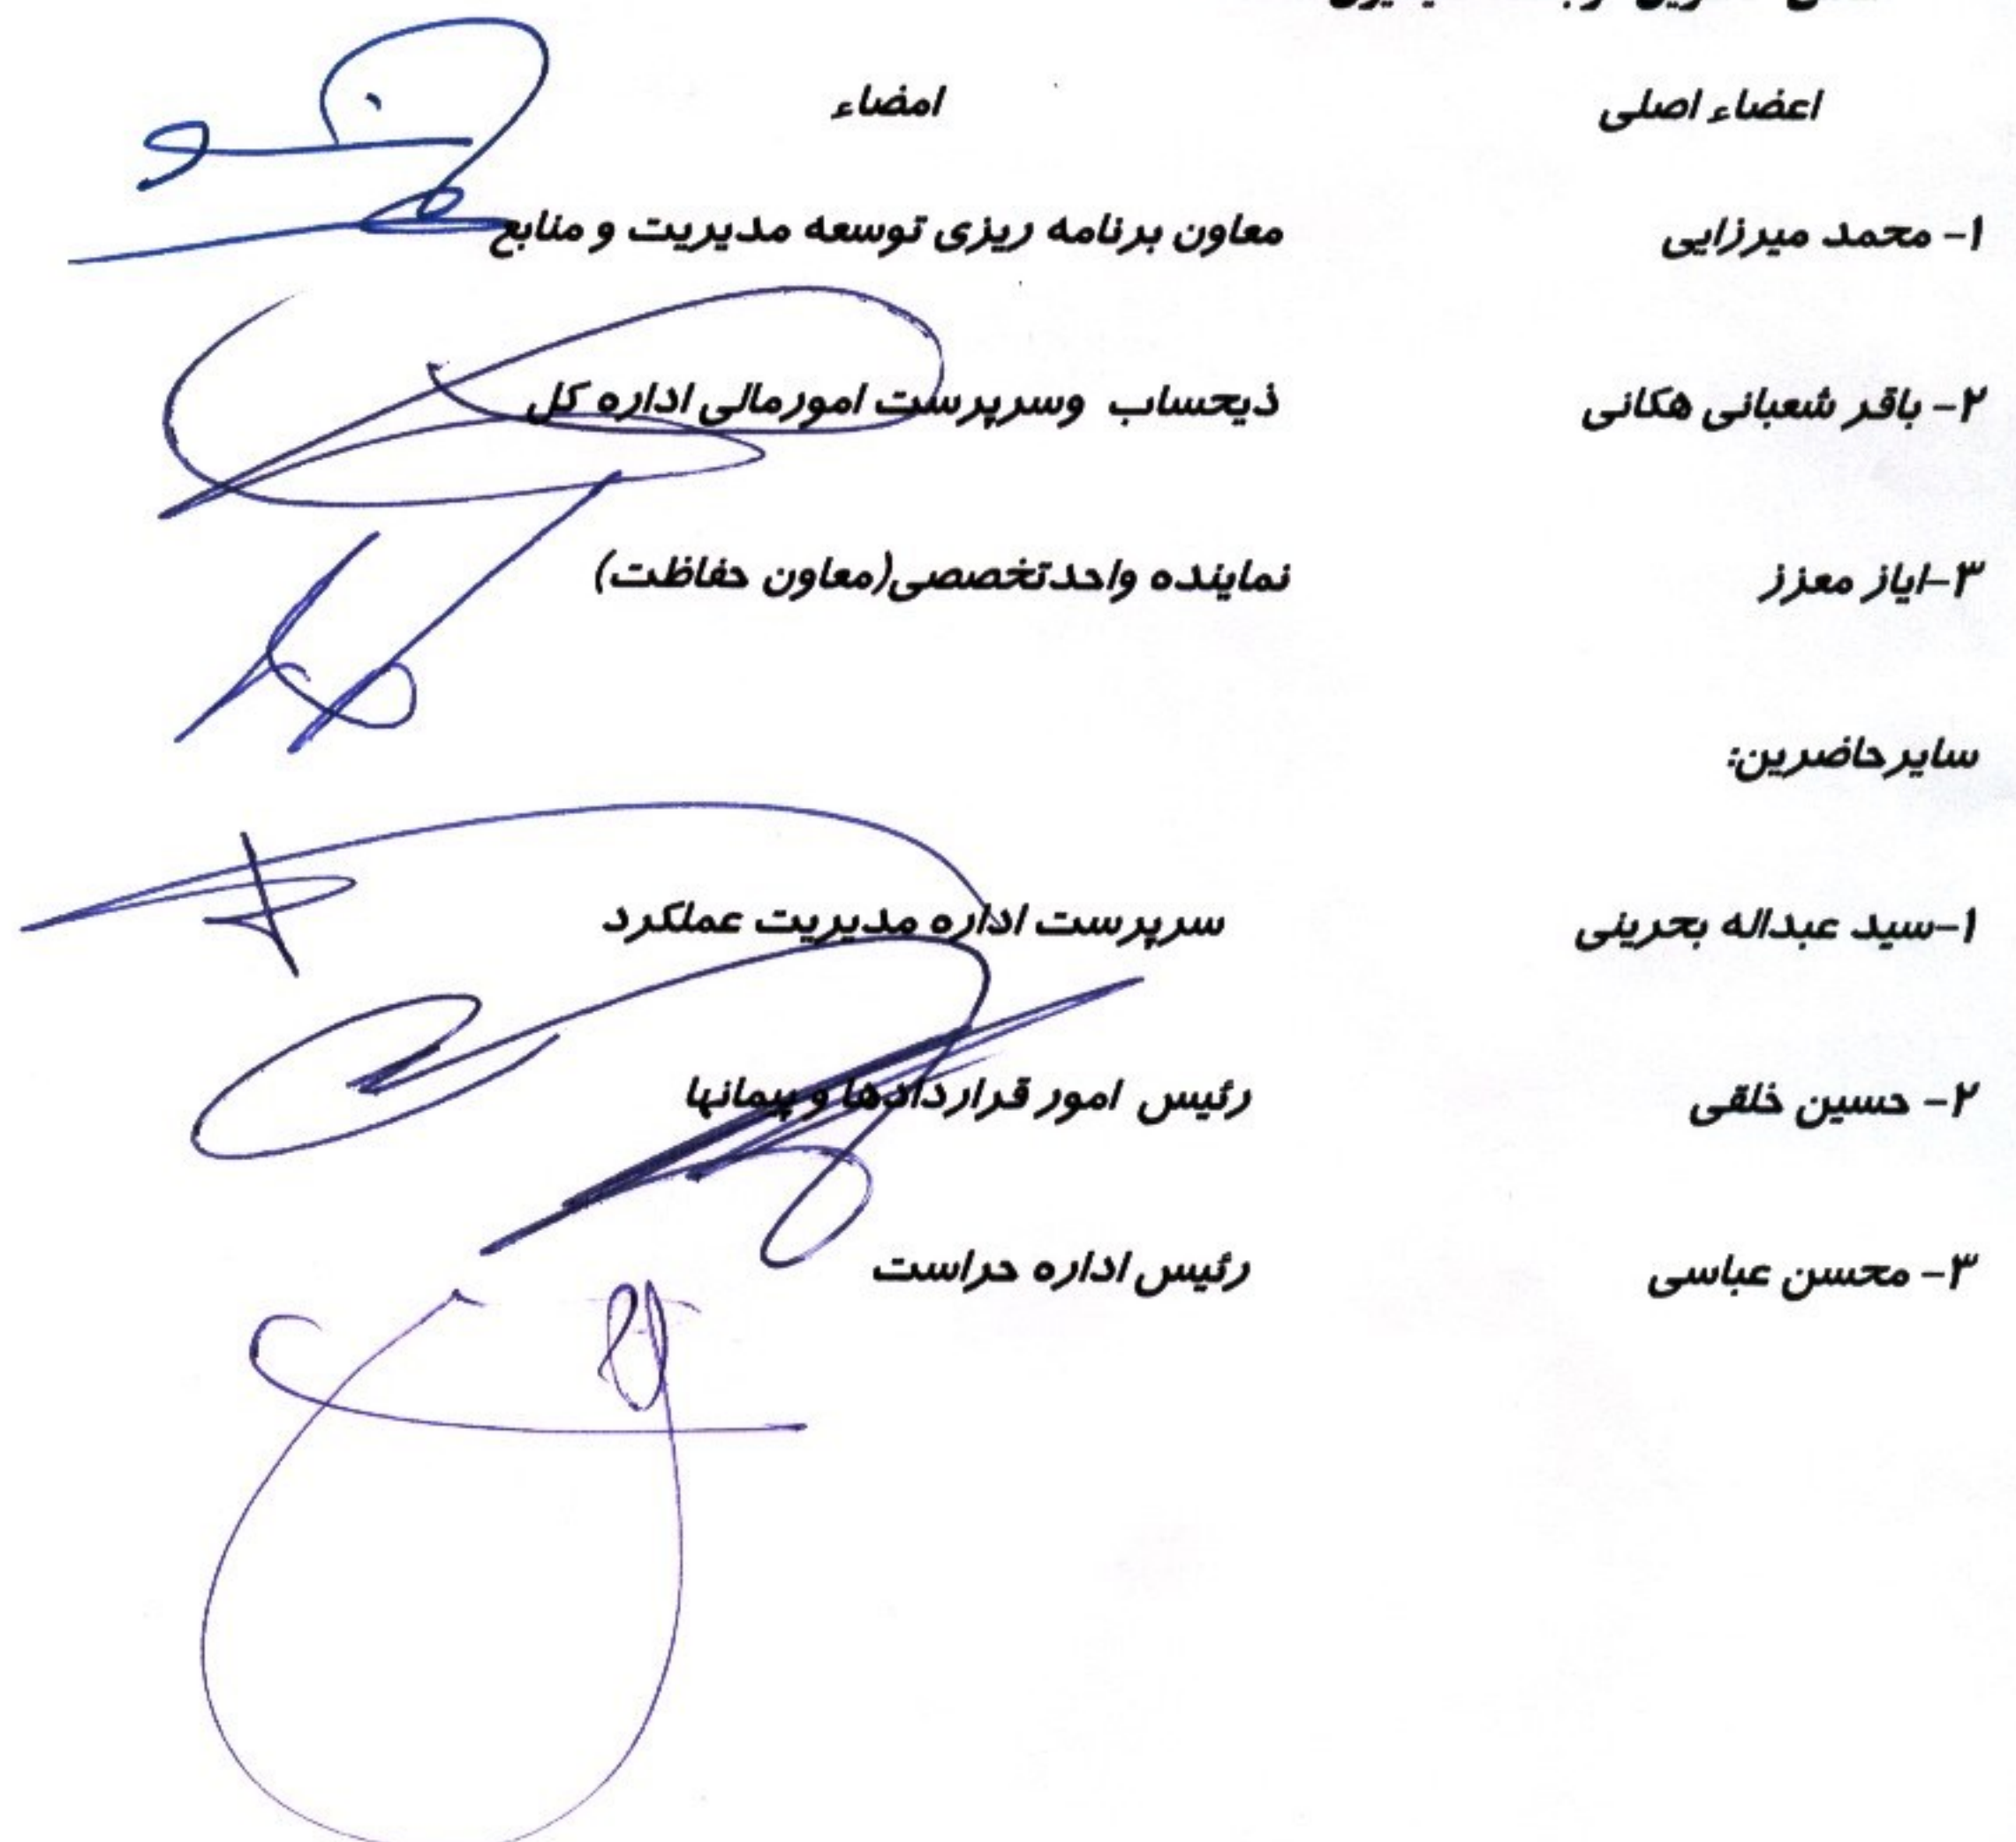 اعضاء اصلی امضاء
۱- محمد میرزایی معاون برنامه ریزی توسعه مدیریت و منابع
۲- باقر شعبانی هکانی ذیحساب وسرپرست امورمالی اداره کل
۳-ایاز معزز نماینده واحدتخصصی(معاون حفاظت)
سایرحاضرین:
۱-سید عبداله بحرینی سرپرست اداره مدیریت عملکرد
۲- حسین خلقی رئیس امور قراردادها و پیمانها
۳- محسن عباسی رئیس اداره حراست